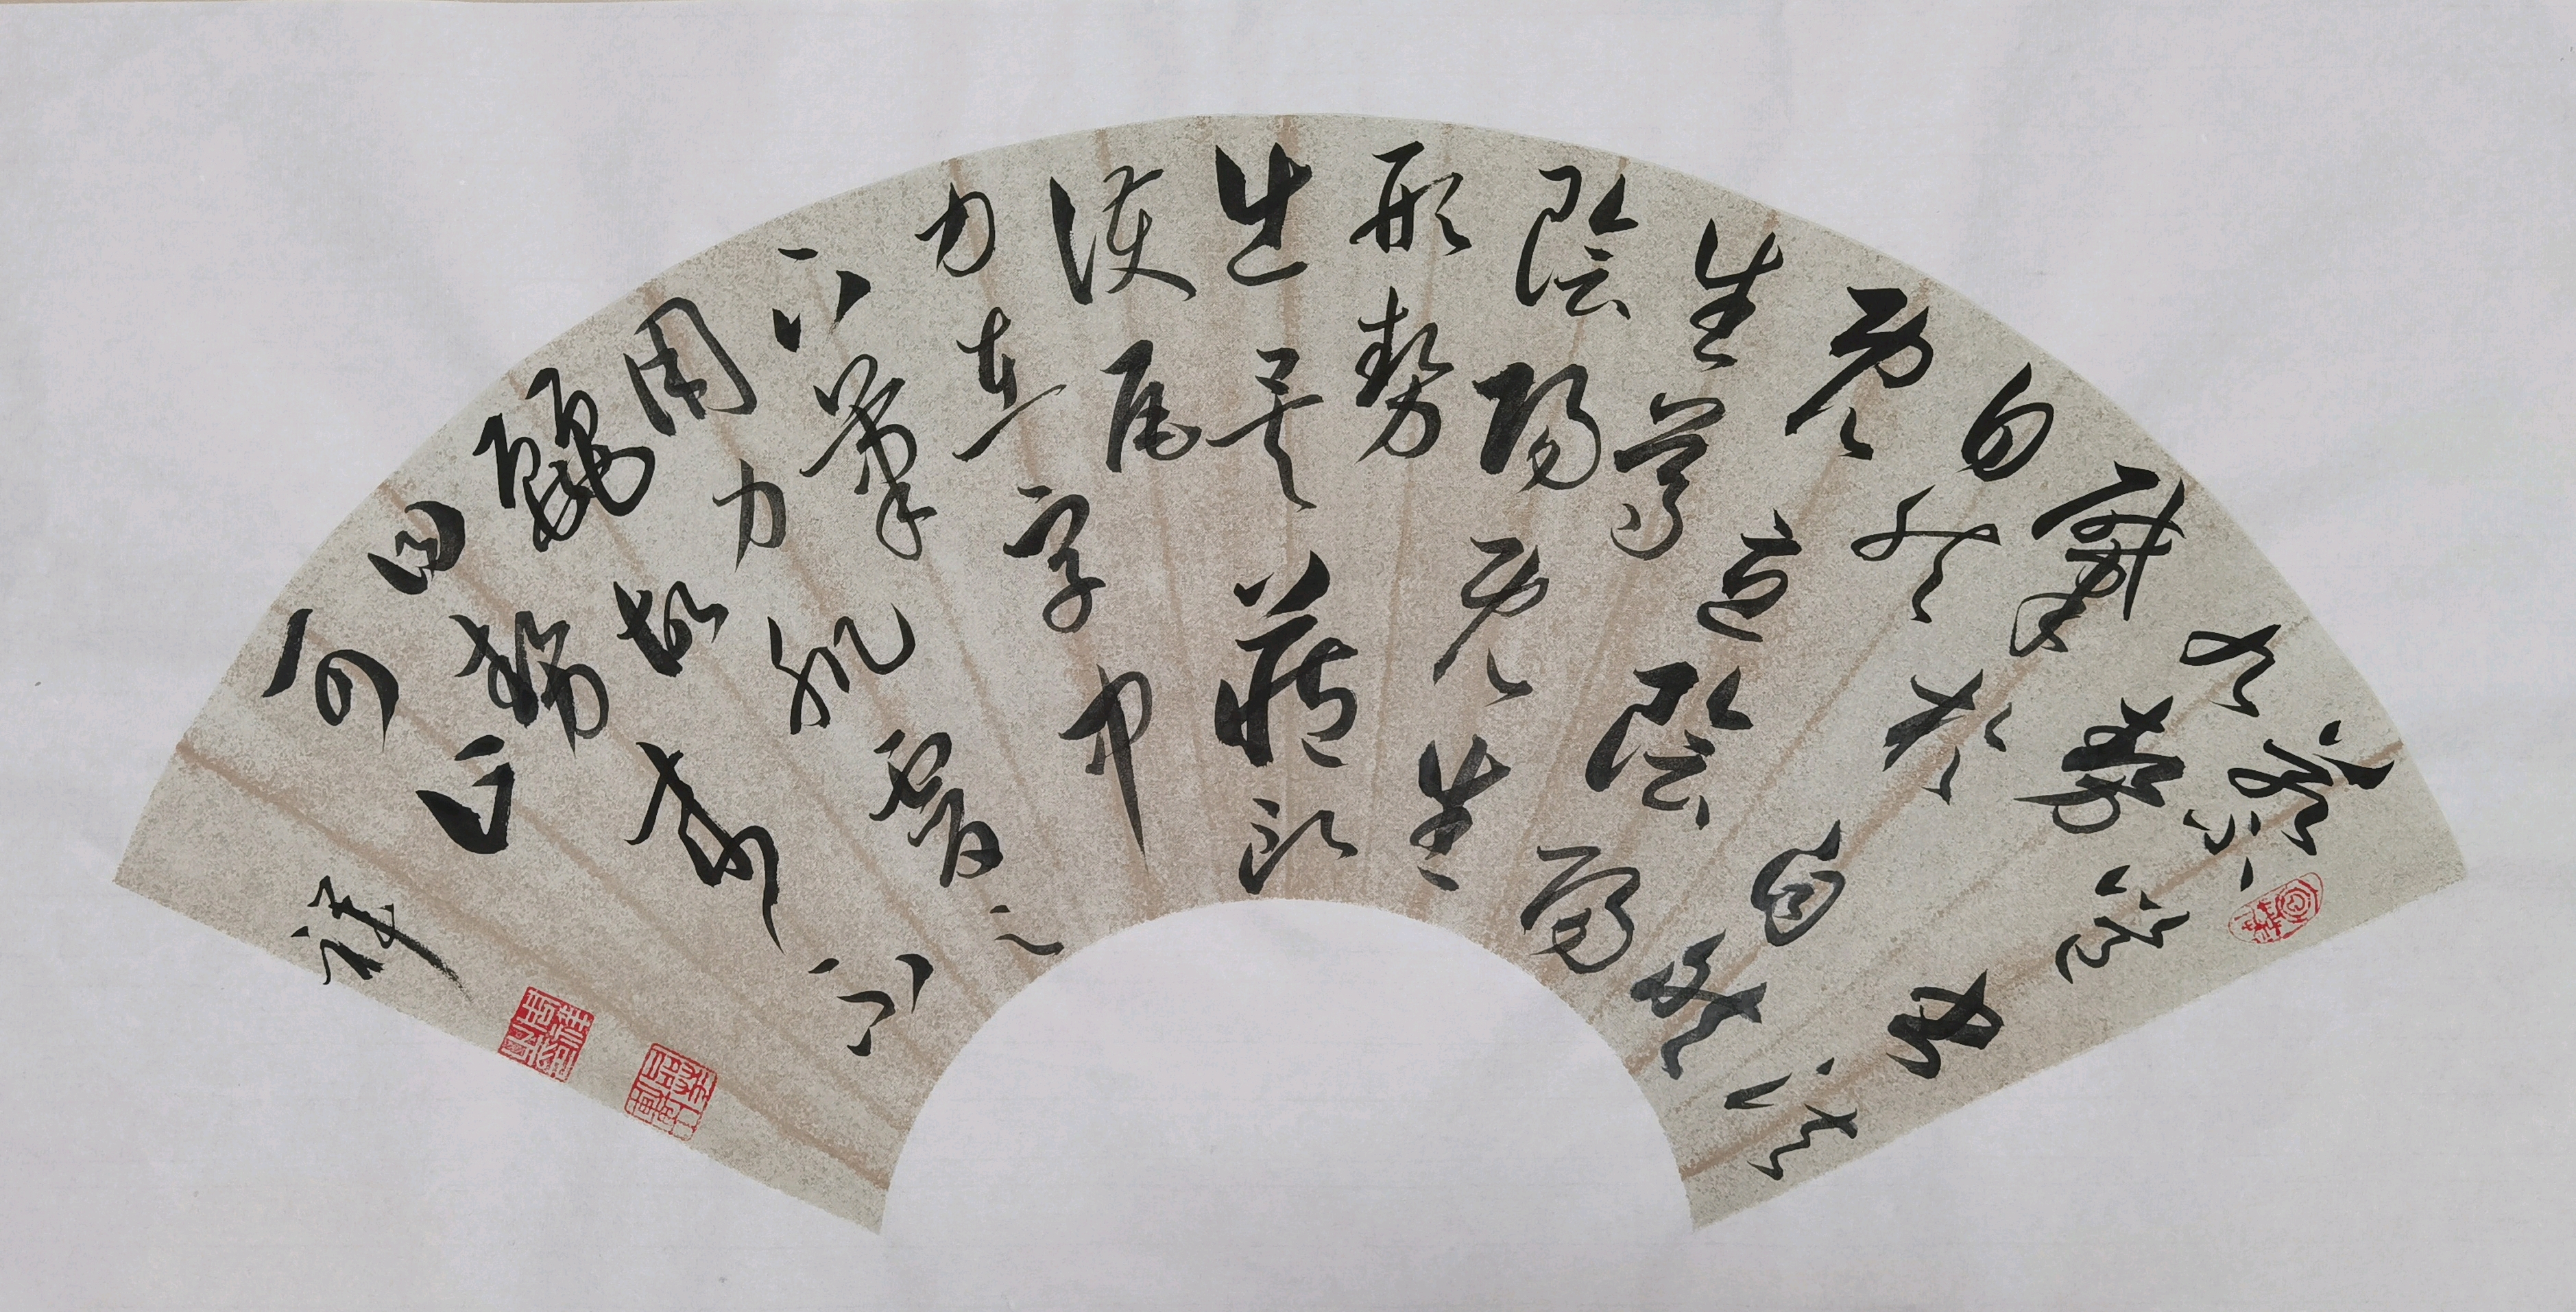 蔡邕
九勢
肇於自然
自然
既立陰陽
生焉
陰陽既生
形勢
出矣藏頭
護尾
力在字中
下筆
用力肌膚之
麗故
曰勢來不
可止
祥